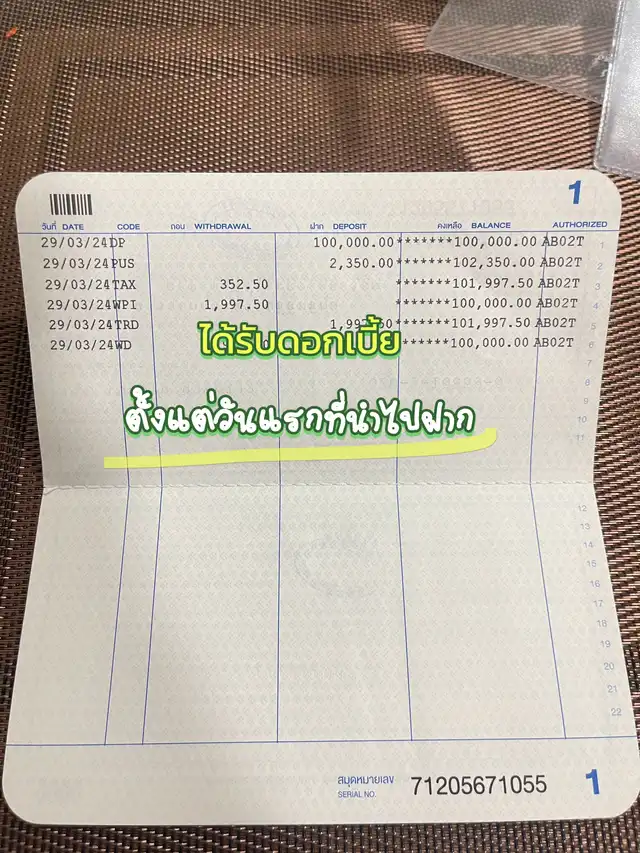 1
วันที่ DATE CODE ถอน WITHDRAWAL ฝาก DEPOSIT คงเหลือ BALANCE AUTHORIZED
29/03/24DP 100,000.00*******100,000.00 AB02T 1
29/03/24PUS 2,350.00*******102,350.00 AB02T 2
29/03/24TAX 352.50 *******101,997.50 AB02T 3
29/03/24WPI 1,997.50 *******100,000.00 AB02T 4
29/03/24TRD *******101,997.50 AB02T 5
29/03/24WD *******100,000.00 AB02T 6
ได้รับดอกเบี้ย
7
8
9
ตั้งแต่วันแรกที่นำไปฝาก
10
11
12
13
14
15
16
17
18
19
20
21
22
สมุดหมายเลข
SERIAL NO. 71205671055 1